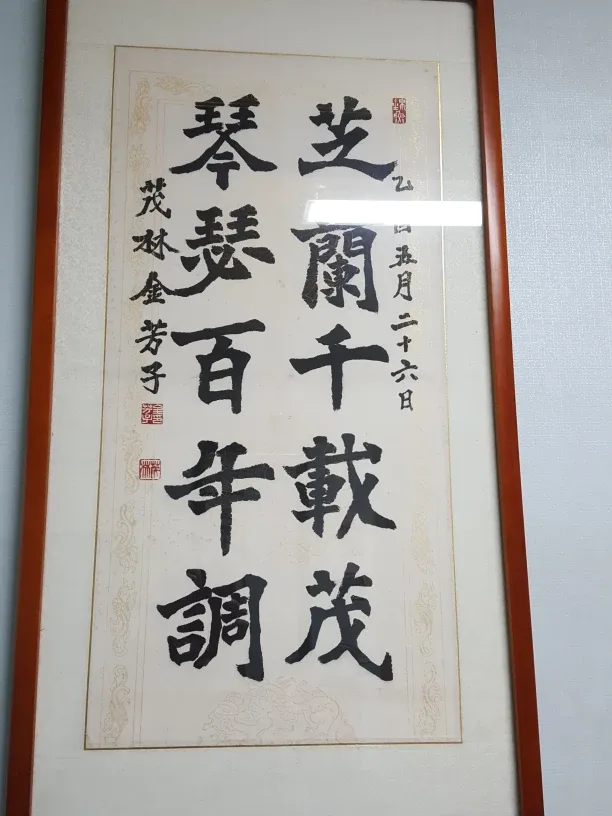 乙酉五月二十六日
芝蘭千載茂
琴瑟百年調
茂林金芳子